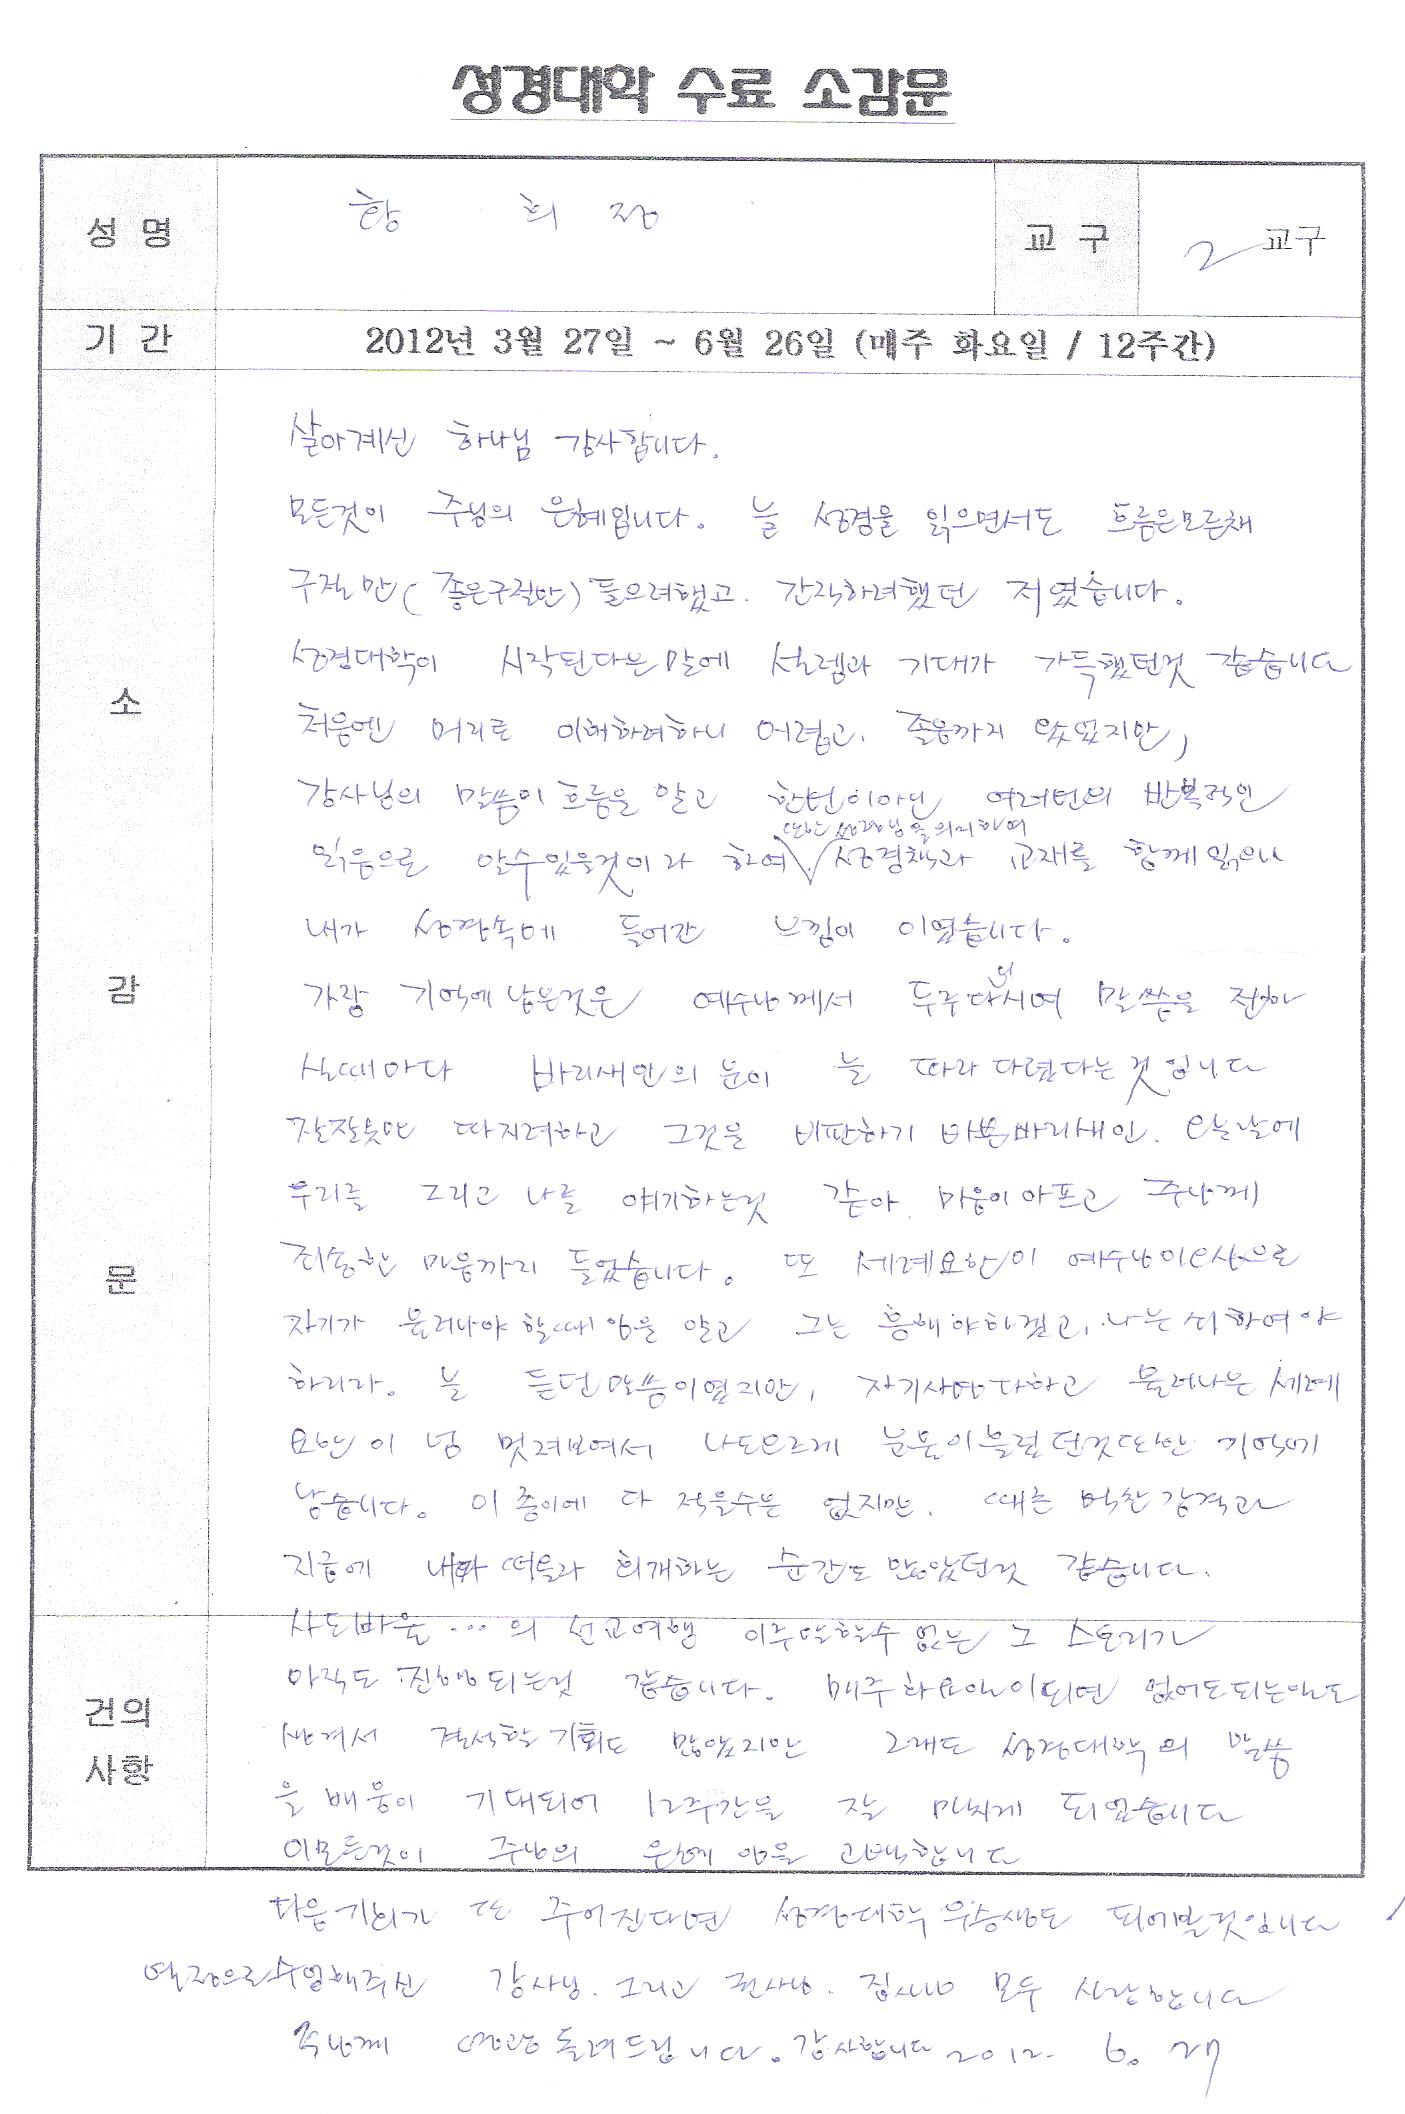 성경대학 수료 소감문
성 명 황 희 정 교 구 2 교구
기 간 2012년 3월 27일 ~ 6월 26일 (매주 화요일 / 12주간)
살아계신 하나님 감사합니다.
모든것이 주님의 은혜입니다. 늘 성경을 읽으면서도 흐름은모른채
구절만(좋은구절만) 들으려했고. 간직하려했던 저였습니다.
성경대학이 시작된다는말에 설렘과 기대가 가득했던것 같습니다
처음엔 머리로 이해하려하니 어렵고. 졸음까지 왔었지만,
강사님의 말씀이 흐름을 알고 한번이아닌 여러번의 반복적인
또한 성령님을의지하여
읽음으로 알수있을것이라 하여 성경책과 교재를 함께읽으니
내가 성경속에 들어간 느낌이 이였습니다.
가장 기억에남는것은 예수님께서 두루다니시며 말씀을 전하
실때마다 바리새인의 눈이 늘 따라다녔다는것입니다
잘잘못만 따지려하고 그것을 비판하기 바쁜바리새인. 오늘날에
우리를 그리고 나를 얘기하는것 같아. 마음이아프고 주님께
죄송한 마음까지 들었습니다. 또 세례요한이 예수님이오심으로
자기가 물러나야 할때임을 알고 그는 흥해야하겠고, 나는쇠하여야
하리라. 늘 듣던말씀이였지만, 자기사명다하고 물러나는세례
요한이 넘 멋져보여서 나도모르게 눈물이흘렀던것또한 기억에
남습니다. 이 종이에 다 적을수는 없지만. 때론 벅찬감격과
지금에 내가 떠올라 회개하는 순간도 많았던것 같습니다.
사도바울...의 선교여행 이루말할수없는 그 스토리가
아직도 진행되는것 같습니다. 매주화요일이되면 없어도되는일도
생겨서 결석할기회도 많았지만 그래도 성경대학의 말씀
을배움이 기대되어 12주간을 잘 마치게 되었습니다
이모든것이 주님의 은혜임을 고백합니다
다음기회가 또 주어진다면 성경대학우승생도 되어볼것입니다
열정으로수업해주신 강사님. 그리고 전사님. 집사님 모두 사랑합니다
주님께 영광돌려드립니다. 감사합니다 2012. 6. 27
소
감
문
건의
사항